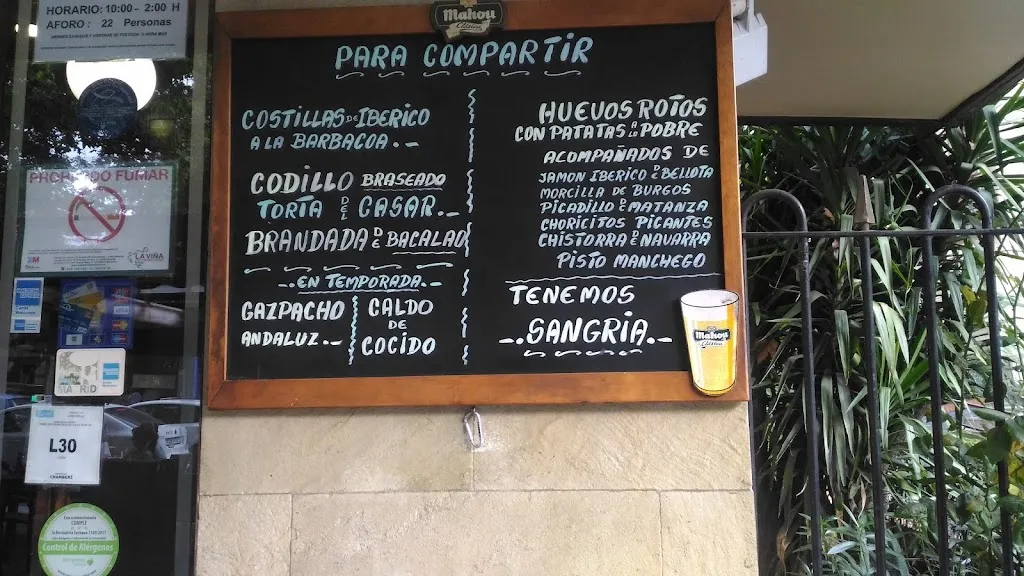 HORARIO: 10:00- 2:00 H
AFORO: 22 Personas
PROHIBIDO FUMAR
LA VIÑA
L30
CHAMBERÍ
Control de Alérgenos
Mahou
Clásica
PARA COMPARTIR
COSTILLAS DE IBERICO
A LA BARBACOA.-
CODILLO BRASEADO
TORTA DEL CASAR.-
BRANDADA DE BACALAO
-.EN TEMPORADA.-
GAZPACHO
ANDALUZ.-
CALDO
DE
COCIDO
HUEVOS ROTOS
CON PATATAS A LO POBRE
ACOMPAÑADOS DE
JAMON IBERICO DE BELLOTA
MORCILLA DE BURGOS
PICADILLO DE MATANZA
CHORICITOS PICANTES
CHISTORRA DE NAVARRA
PISTO MANCHEGO
TENEMOS
-.SANGRIA.-
Mahou
Clásica